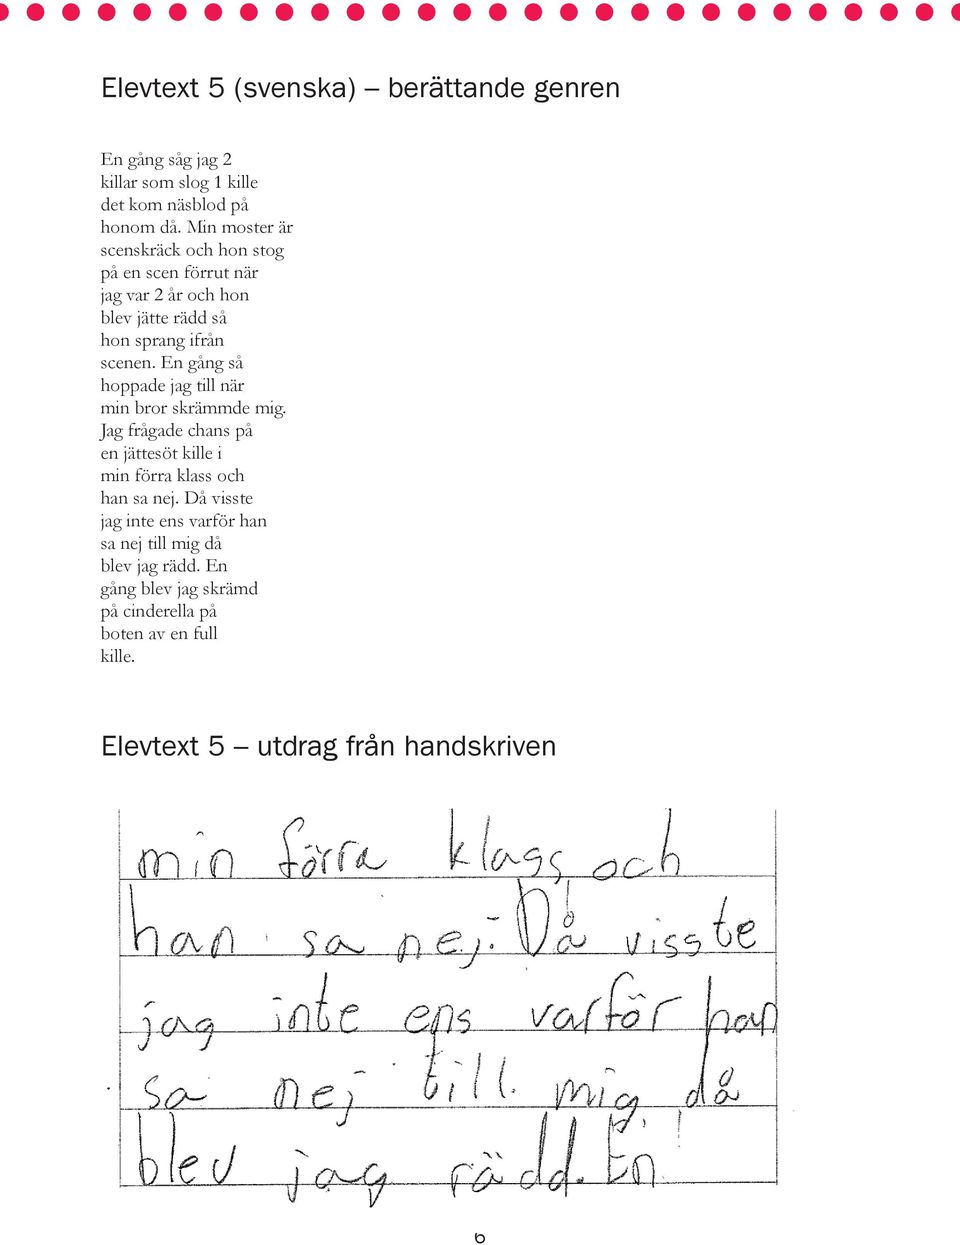 Elevtext 5 (svenska) – berättande genren
En gång såg jag 2
killar som slog 1 kille
det kom näsblod på
honom då. Min moster är
scenskräck och hon stog
på en scen förrut när
jag var 2 år och hon
blev jätte rädd så
hon sprang ifrån
scenen. En gång så
hoppade jag till när
min bror skrämmde mig.
Jag frågade chans på
en jättesöt kille i
min förra klass och
han sa nej. Då visste
jag inte ens varför han
sa nej till mig då
blev jag rädd. En
gång blev jag skrämd
på cinderella på
boten av en full
kille.
Elevtext 5 – utdrag från handskriven
min förra klass och
han sa nej. Då visste
jag inte ens varför han
sa nej till mig då
blev jag rädd. En
6